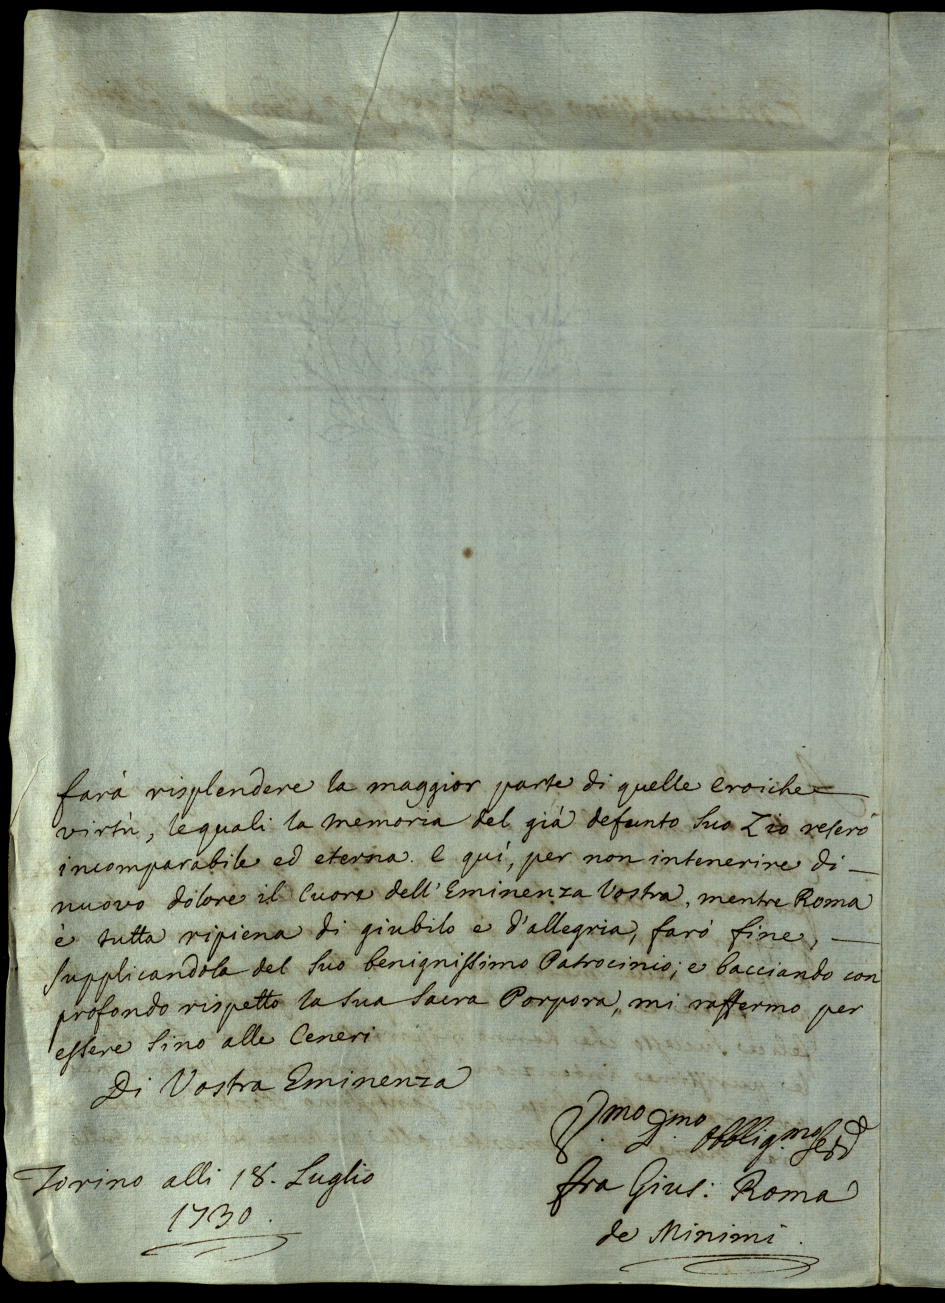 farà risplendere la maggior parte di quelle eroiche
virtù, le quali la memoria del già defunto suo Zio reserò
incomparabile ed eterna. E quì, per non intenerire di
nuovo dolore il Cuore dell'Eminenza Vostra, mentre Roma
è tutta ripiena di giubilo e d'allegria, farò fine,
supplicandola del suo benignissimo Patrocinio; e bacciando con
profondo rispetto la sua Sacra Porpora, mi raffermo per
essere sino alle Ceneri
Di Vostra Eminenza
obblig.mo
Torino alli 18. Luglio
1730.
fra Gius: Roma
de Minimi.